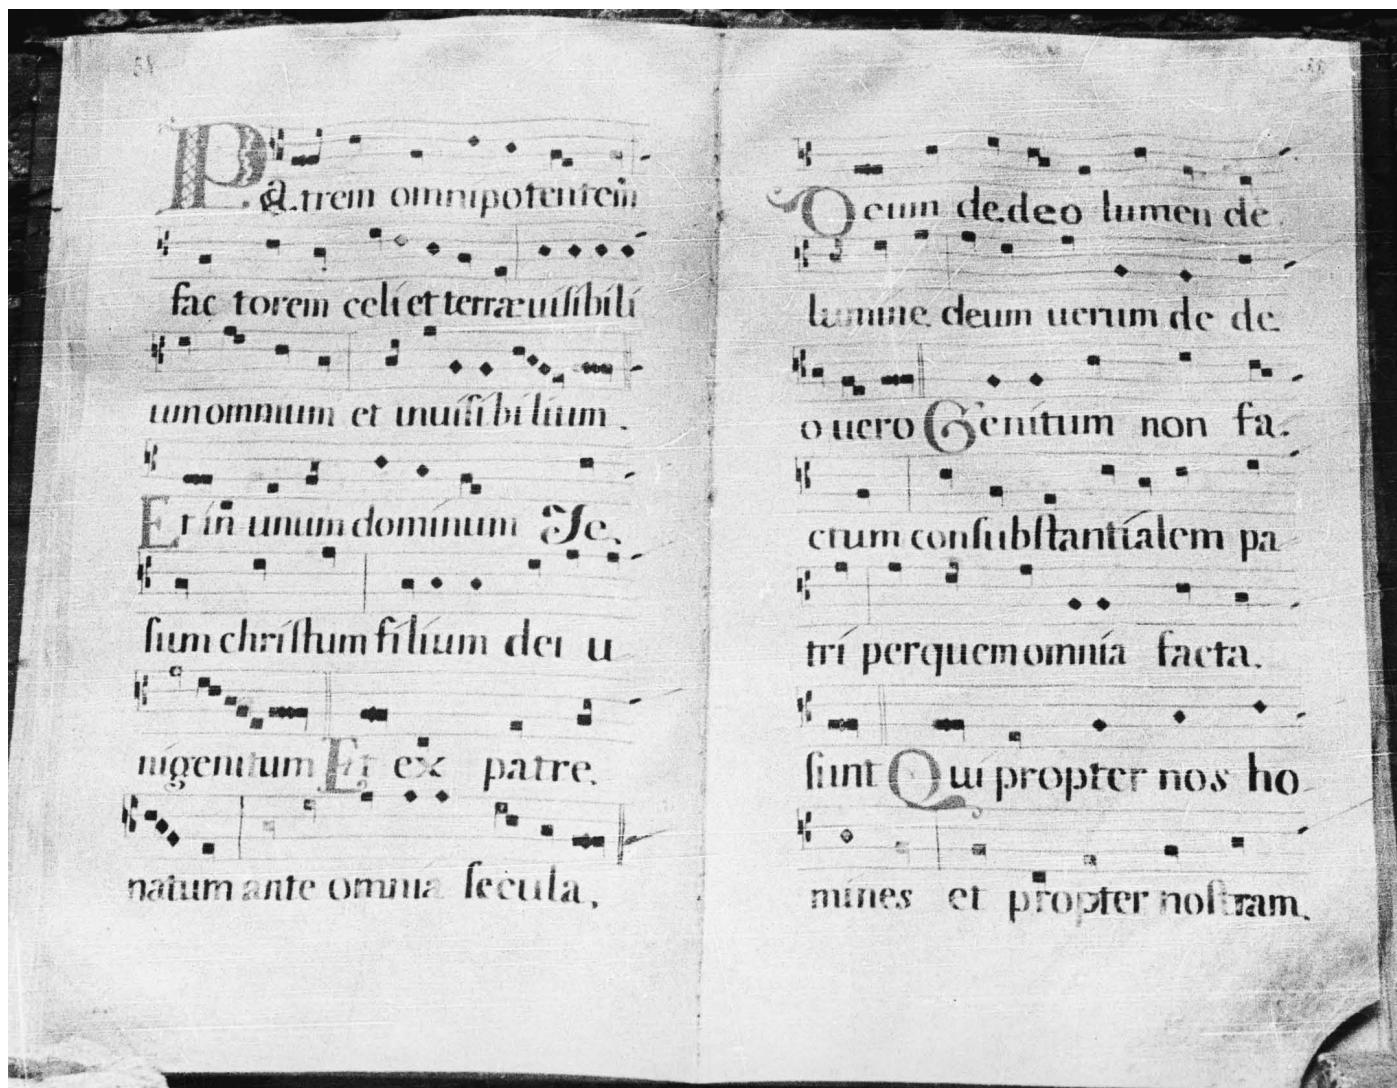 58
Patrem omnipotentem
factorem celi et terræ uisibili
um omnium et inuisibilium.
Et in unum dominum Je.
sum christum filium dei u
nigenitum Et ex patre.
natum ante omnia secula.
Deum de deo lumen de
lumine deum uerum de de
o uero Genitum non fa.
ctum consubstantialem pa
tri per quem omnia facta.
sunt Qui propter nos ho
mines et propter nostram.